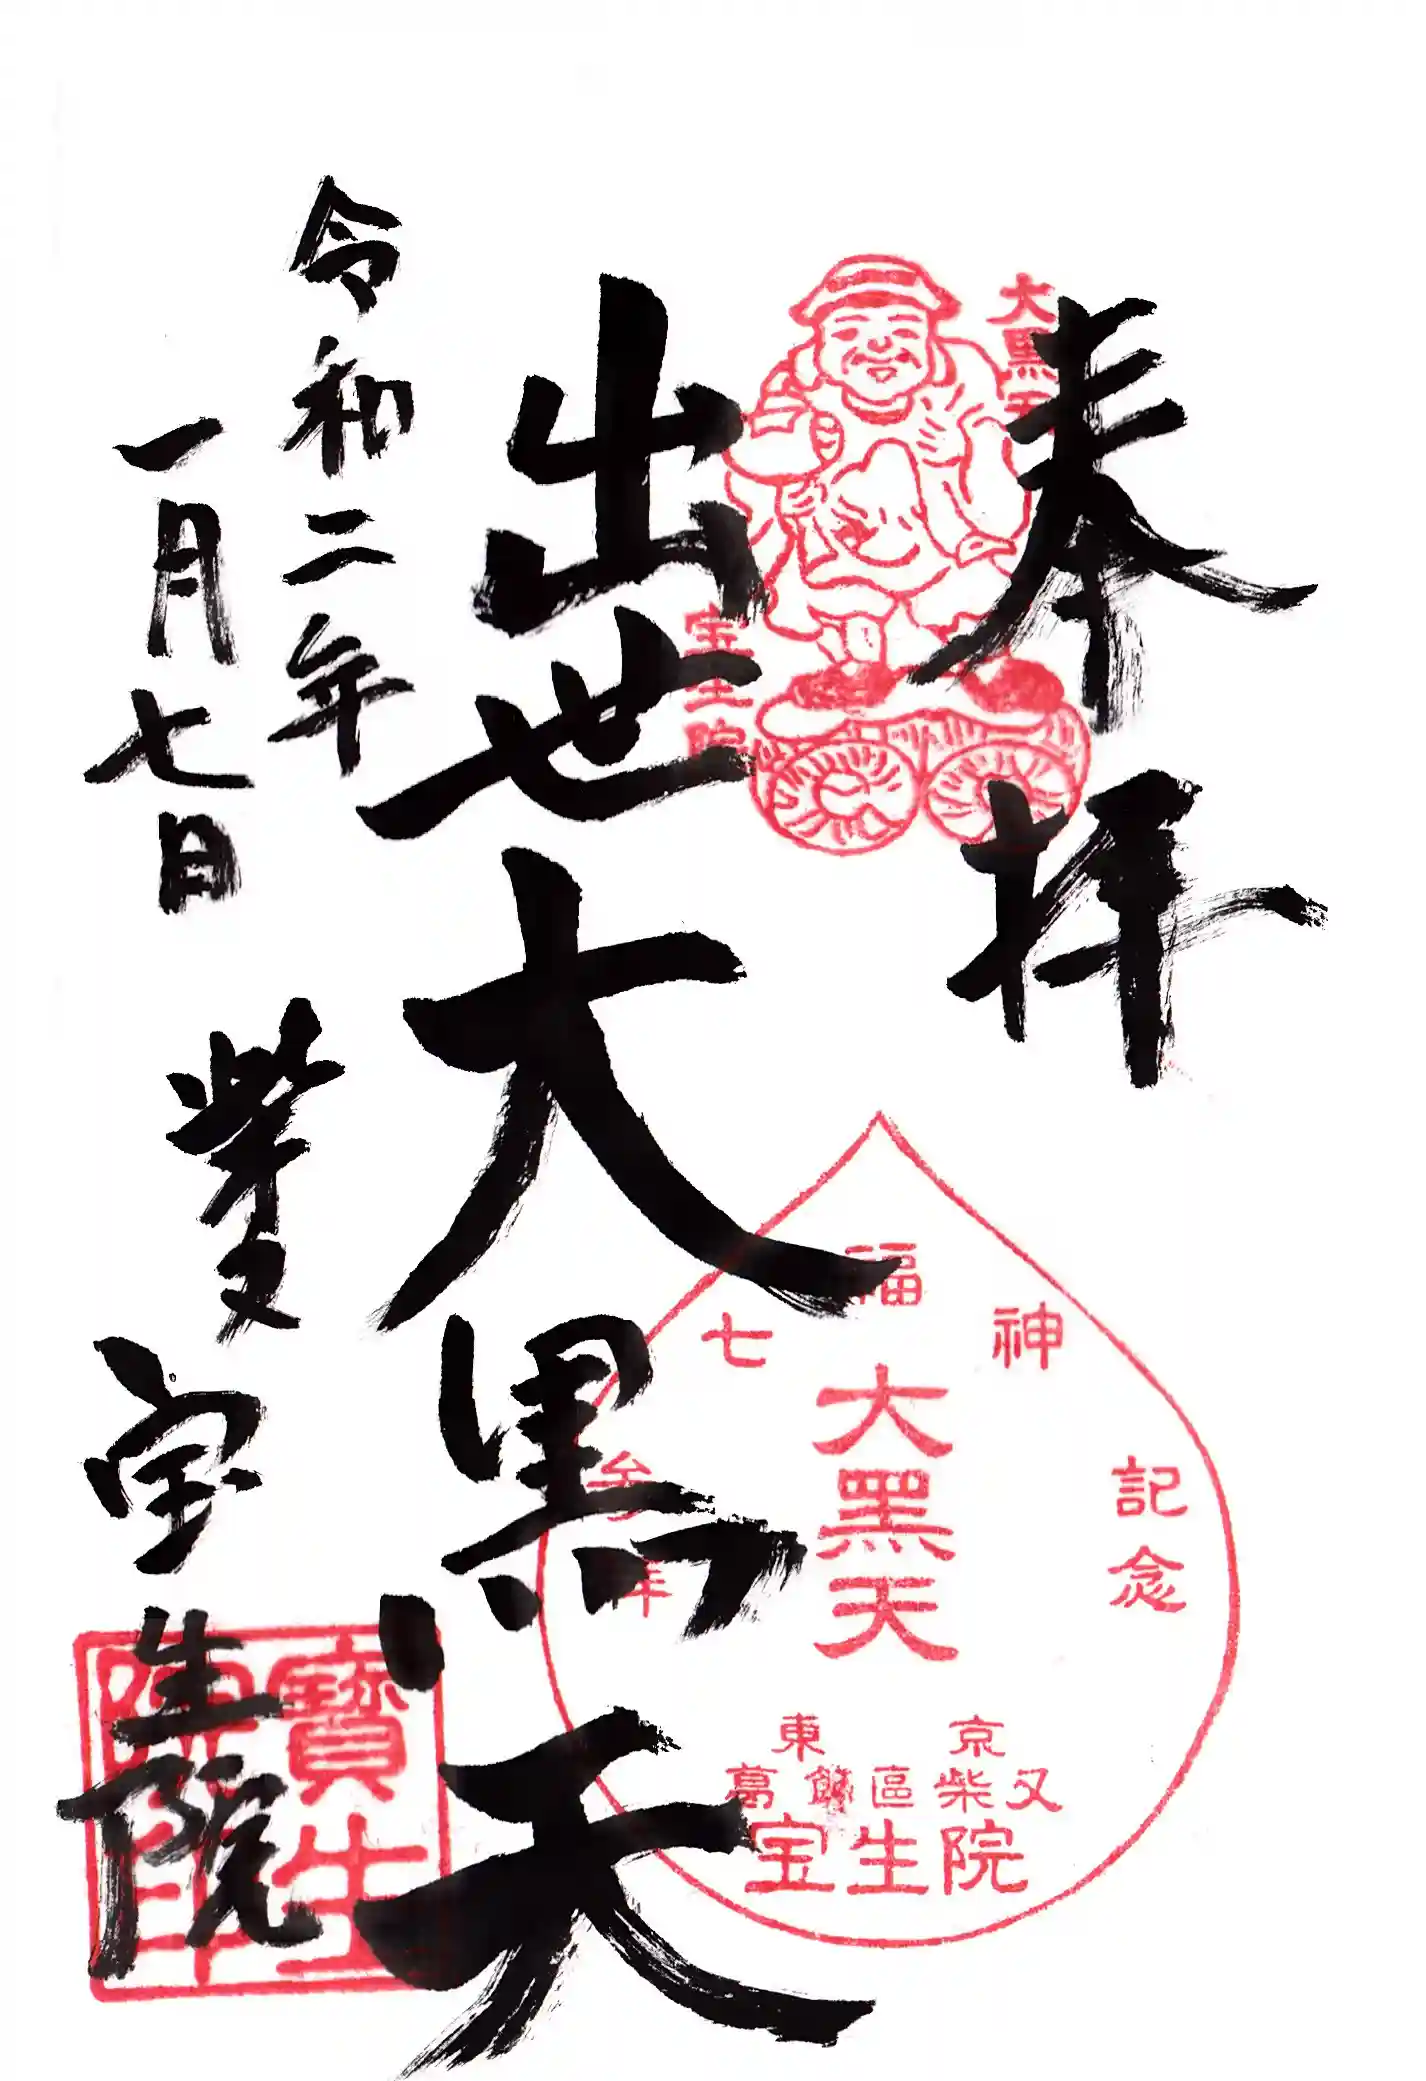 奉拝
大黒天
宝生院
出世大黒天
令和二年
一月七日
柴又
宝生院
七福神
記念
大黑天
東京
葛飾區柴又
宝生院
寶生院印